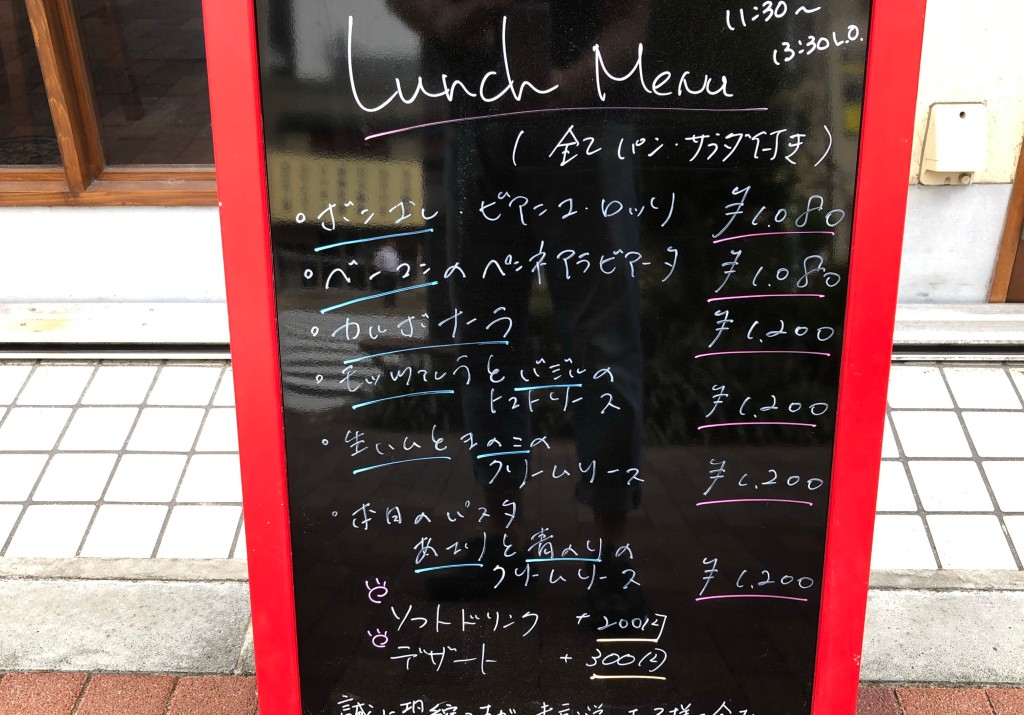 11:30～
13:30 L.O.
Lunch Menu
(全てパン・サラダ付き)
ボンゴレ・ビアンコ・ロッソ ¥1.080
ベーコンのペンネアラビアータ ¥1.080
カルボナーラ ¥1.200
モッツァレラとバジルの
トマトソース ¥1.200
生ハムときのこの
クリームソース ¥1.200
本日のパスタ
あさりと青のりの
クリームソース ¥1.200
ソフトドリンク +200円
デザート +300円
誠に恐縮ですが、未就学のお子様の